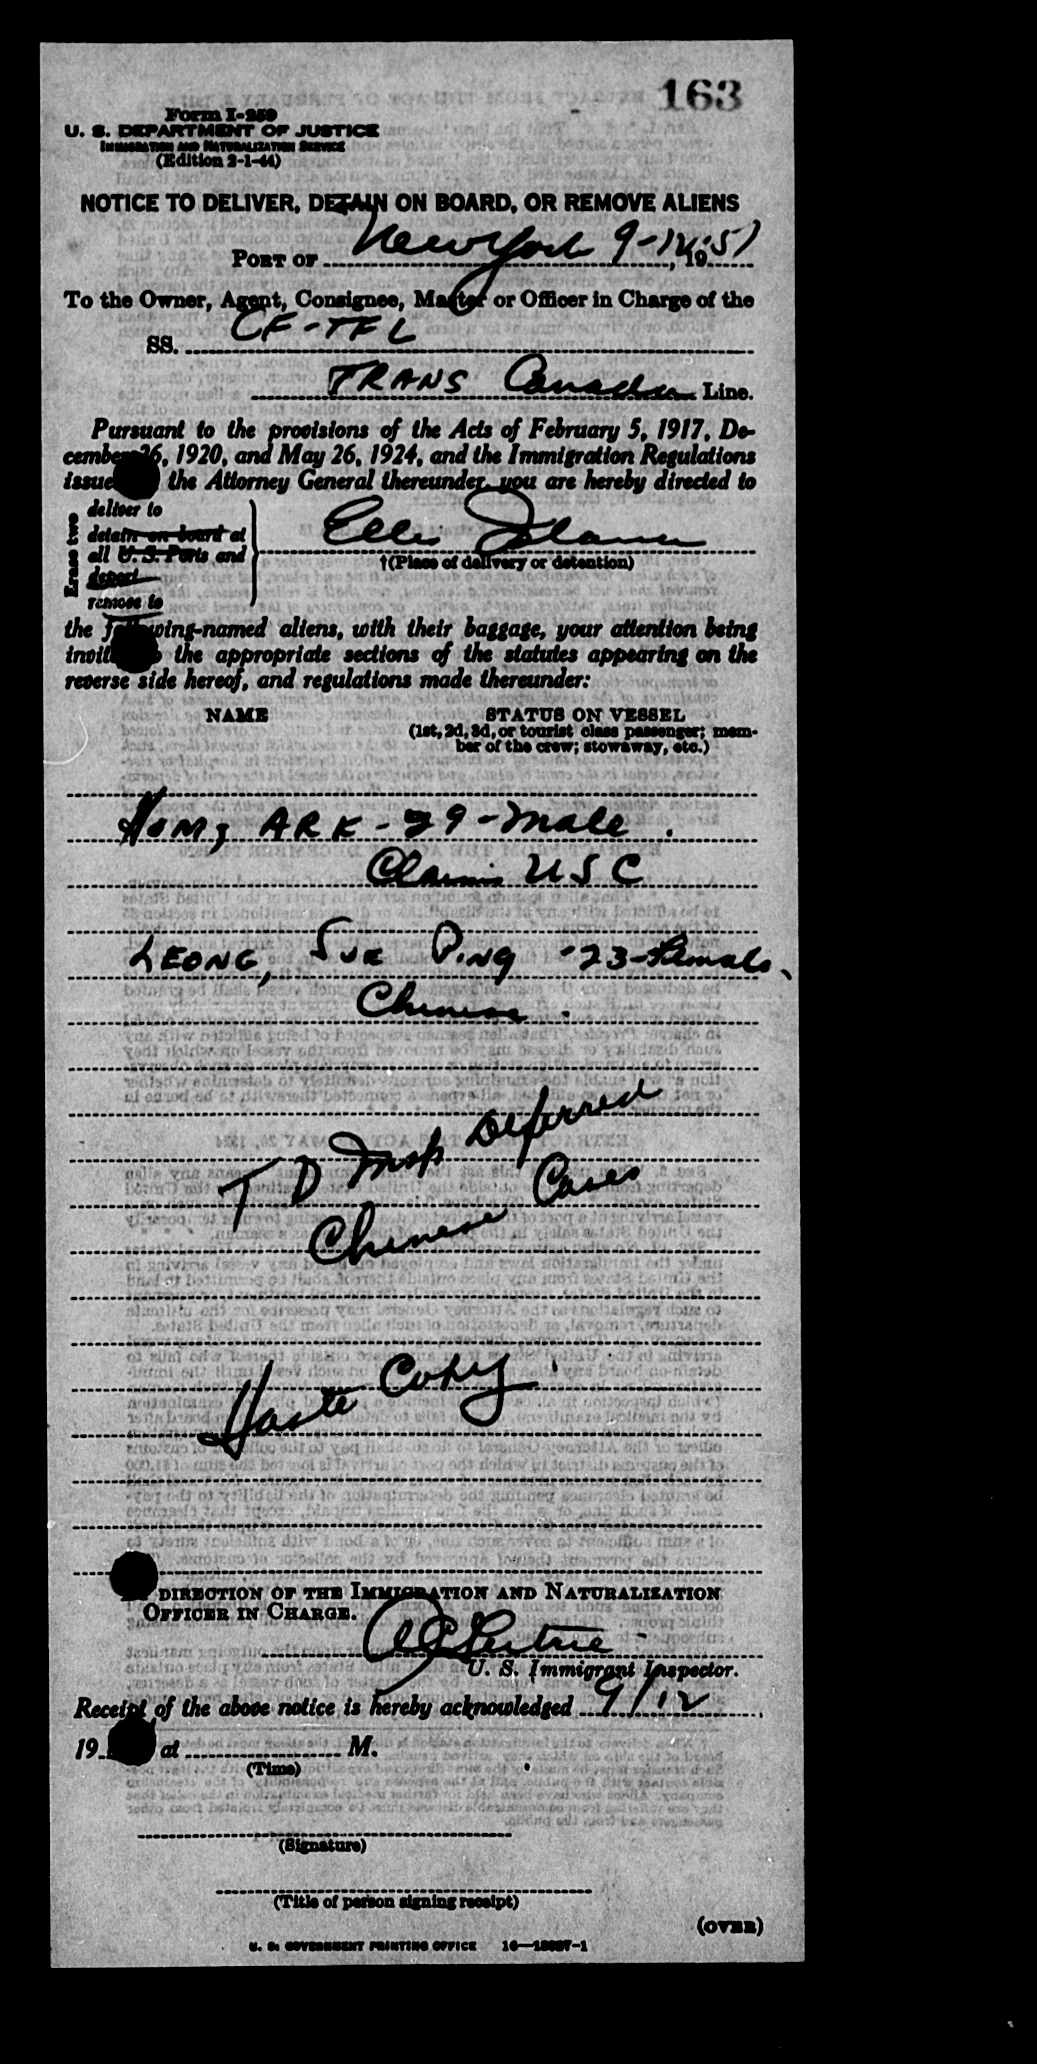 163
Form I-259
U. S. DEPARTMENT OF JUSTICE
IMMIGRATION AND NATURALIZATION SERVICE
(Edition 2-1-44)
NOTICE TO DELIVER, DETAIN ON BOARD, OR REMOVE ALIENS
PORT OF New York 9-12, 1951
To the Owner, Agent, Consignee, Master or Officer in Charge of the
SS. CF-TFL
TRANS Canada Line.
Pursuant to the provisions of the Acts of February 5, 1917, De-
cember 26, 1920, and May 26, 1924, and the Immigration Regulations
issue the Attorney General thereunder, you are hereby directed to
Erase two
deliver to
detain on board at
all U. S. Ports and
deport
remove to
Ellis Island
†(Place of delivery or detention)
the following-named aliens, with their baggage, your attention being
invit the appropriate sections of the statutes appearing on the
reverse side hereof, and regulations made thereunder:
NAME STATUS ON VESSEL
(1st, 2d, 3d, or tourist class passenger; mem-
ber of the crew; stowaway, etc.)
HOM, ARK - 29 - Male.
Claims USC
LEONG, SUE PING - 23 - Female.
Chinese.
T D Insp Deferred
Chinese Cases
Haste Copy
DIRECTION OF THE IMMIGRATION AND NATURALIZATION
OFFICER IN CHARGE.
U. S. Immigrant Inspector.
Receipt of the above notice is hereby acknowledged 9/12,
19 at M.
(Time)
(Signature)
(Title of person signing receipt)
(OVER)
U. S. GOVERNMENT PRINTING OFFICE 16—18287-1